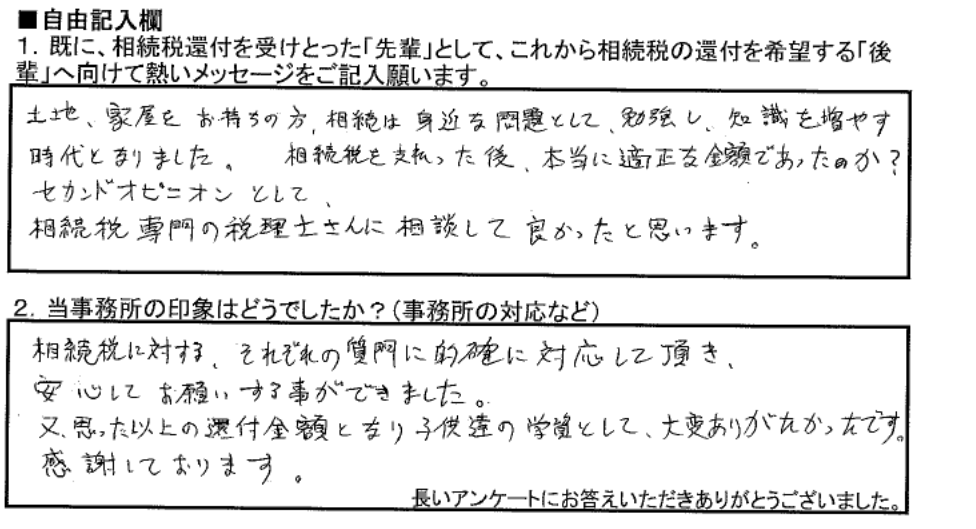 ■自由記入欄
1. 既に、相続税還付を受けとった「先輩」として、これから相続税の還付を希望する「後
輩」へ向けて熱いメッセージをご記入願います。
土地、家屋を お持ちの方、相続は 身近な問題として、勉強し、知識を増やす
時代となりました。 相続税を支払った後、本当に適正な金額であったのか?
セカンドオピニオン として、
相続税 専門の税理士さんに 相談して 良かったと思います。
2. 当事務所の印象はどうでしたか?(事務所の対応など)
相続税に対する、それぞれの質問に的確に対応して頂き、
安心して お願いする事ができました。
又、思った以上の還付金額となり子供達の学資として、大変ありがたかったです。
感謝しております。
長いアンケートにお答えいただきありがとうございました。